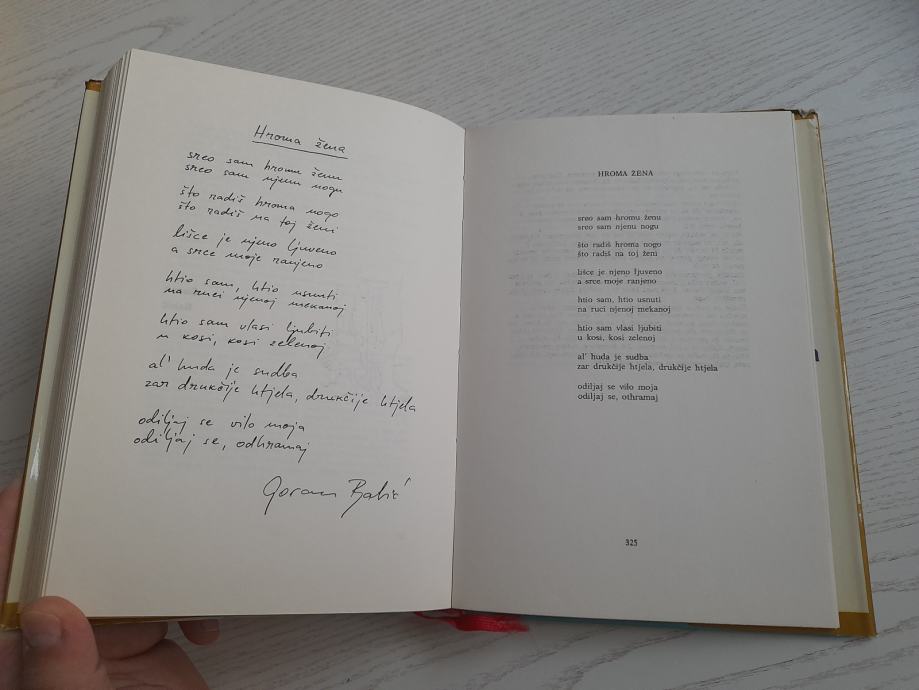 Hroma žena
sreo sam hromu ženu
sreo sam njenu nogu
što radiš hroma nogo
što radiš na toj ženi
lišce je njeno ljuveno
a srce moje ranjeno
htio sam, htio usnuti
na ruci njenoj mekanoj
htio sam vlasi ljubiti
u kosi, kosi zelenoj
al' huda je sudba
zar drukčije htjela, drukčije htjela
odiljaj se vilo moja
odiljaj se, odhramaj
Goran Babić
HROMA ŽENA
sreo sam hromu ženu
sreo sam njenu nogu
što radiš hroma nogo
što radiš na toj ženi
lišce je njeno ljuveno
a srce moje ranjeno
htio sam, htio usnuti
na ruci njenoj mekanoj
htio sam vlasi ljubiti
u kosi, kosi zelenoj
al' huda je sudba
zar drukčije htjela, drukčije htjela
odiljaj se vilo moja
odiljaj se, othramaj
325